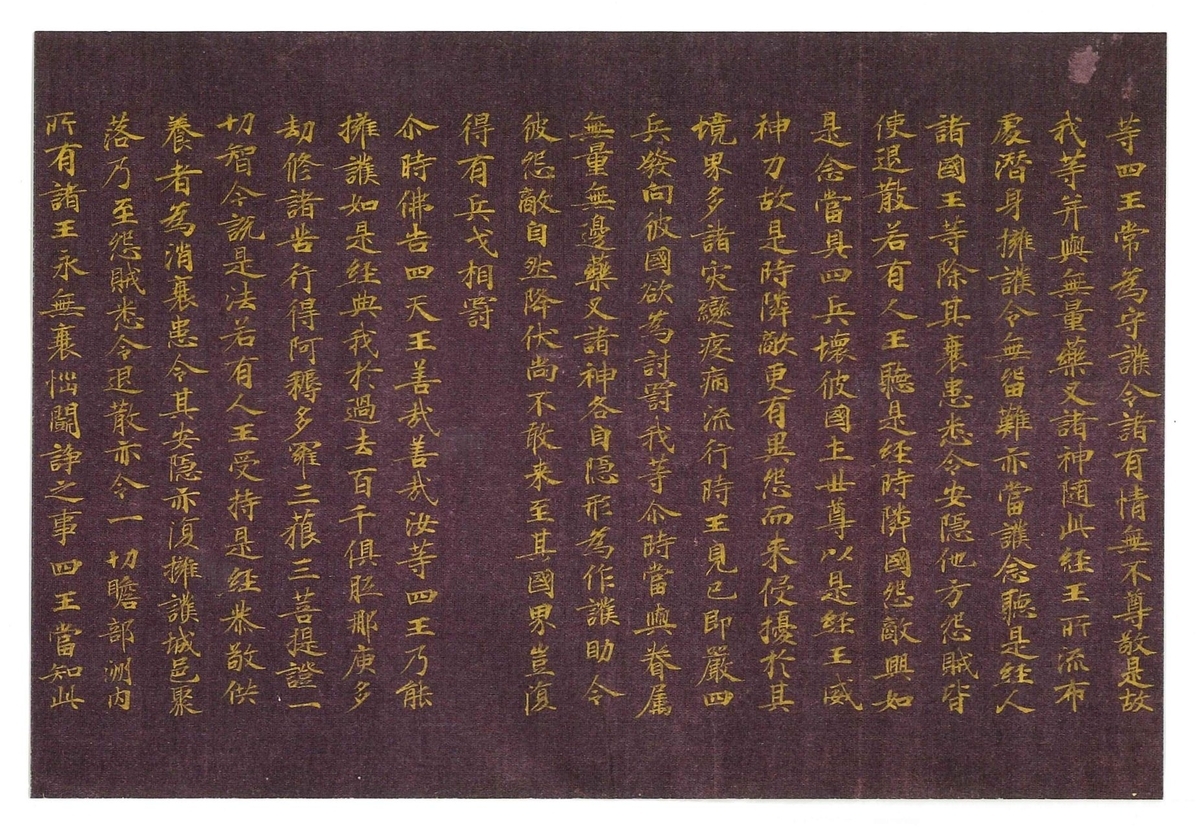 等四王常為守護令諸有情無不尊敬是故
我等并與無量藥叉諸神随此經王所流布
處潛身擁護令無留難亦當護念聽是經人
諸國王等除其衰患悉令安隠他方怨賊皆
使退散若有人王聽是經時隣國怨敵興如
是念當具四兵壞彼國土世尊以是經王威
神力故是時隣敵更有異怨而来侵擾於其
境界多諸灾變疫病流行時王見已即嚴四
兵發向彼國欲為討罸我等尒時當與眷属
無量無邊藥叉諸神各自隠形為作護助令
彼怨敵自然降伏尚不敢来至其國界豈復
得有兵戈相罸
尒時佛告四天王善哉善哉汝等四王乃能
擁護如是經典我於過去百千俱胝那庾多
劫修諸苦行得阿耨多羅三藐三菩提證一
切智今說是法若有人王受持是經恭敬供
養者為消衰患令其安隠亦復擁護城邑聚
落乃至怨賊悉令退散亦令一切贍部洲内
所有諸王永無衰惱鬪諍之事四王當知此